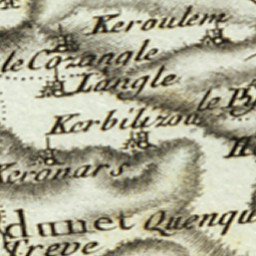 Keroulem
le Cozangle
Langle
le P
Kerbilizou
H
Keronars
dunet
Quenqu
Treve